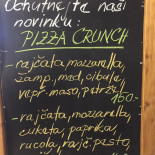 Ochutnejte naši
novinku:
PIZZA CRUNCH
- rajčata, mozzarella,
žamp., med, cibule,
vepř. maso, petržel
160.-
- rajčata, mozzarella,
cuketa, paprika,
rucola, rajč. pesto,